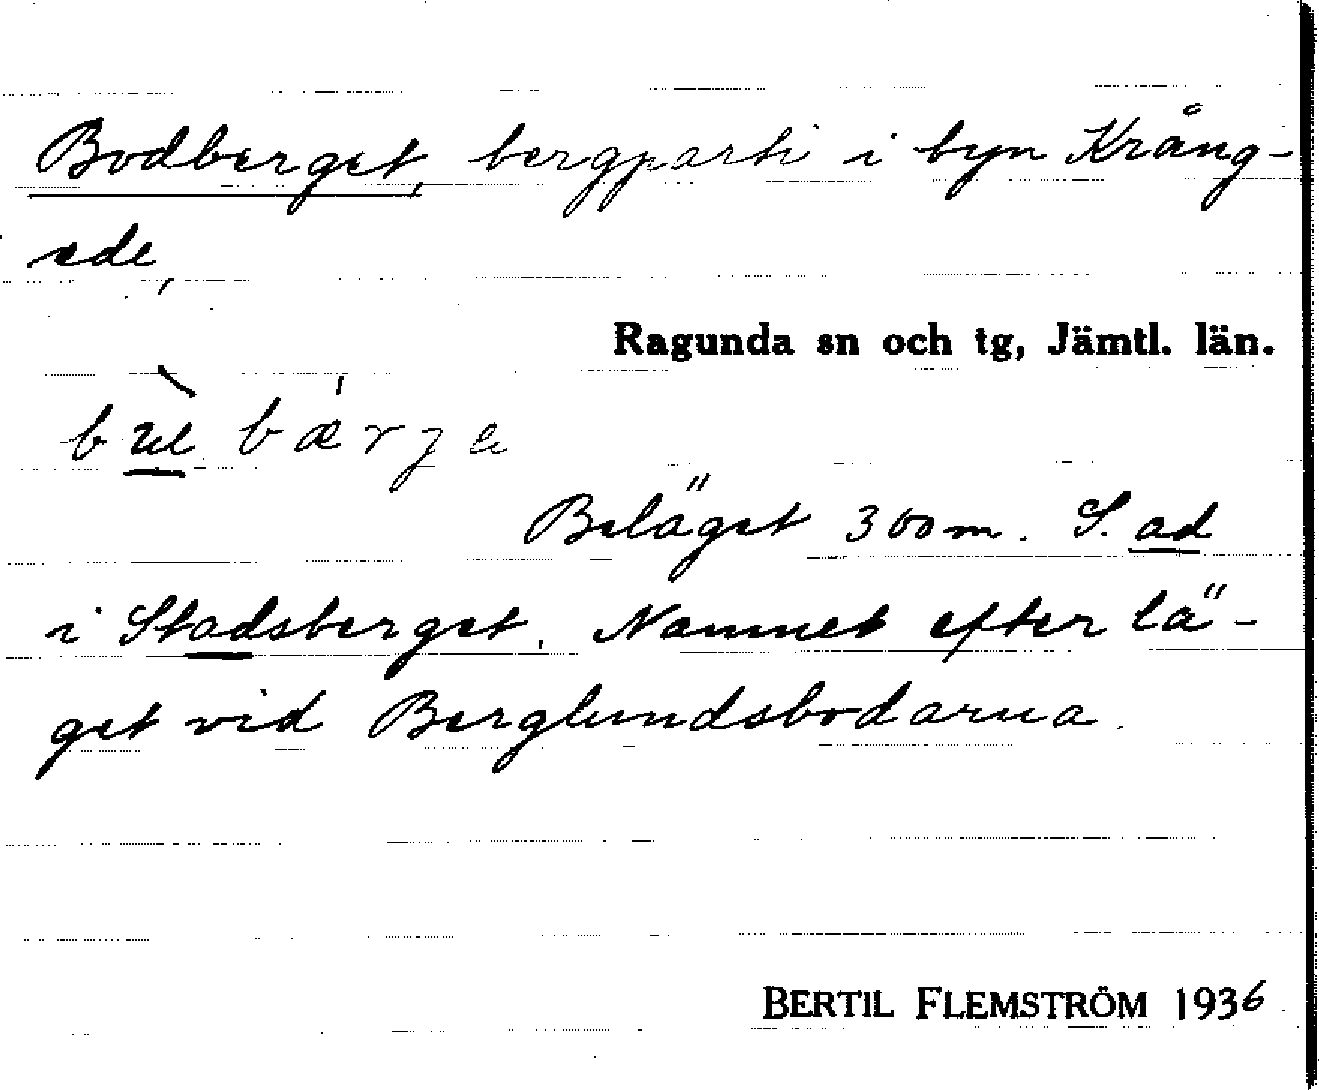 Bodberget, bergparti i byn Krång-
ede,
Ragunda sn och tg, Jämtl. län.
Beläget 300 m. S. ad
i Stadsberget. Namnet efter lä-
get vid Berglundsbodarna.
BERTIL FLEMSTRÖM 1936